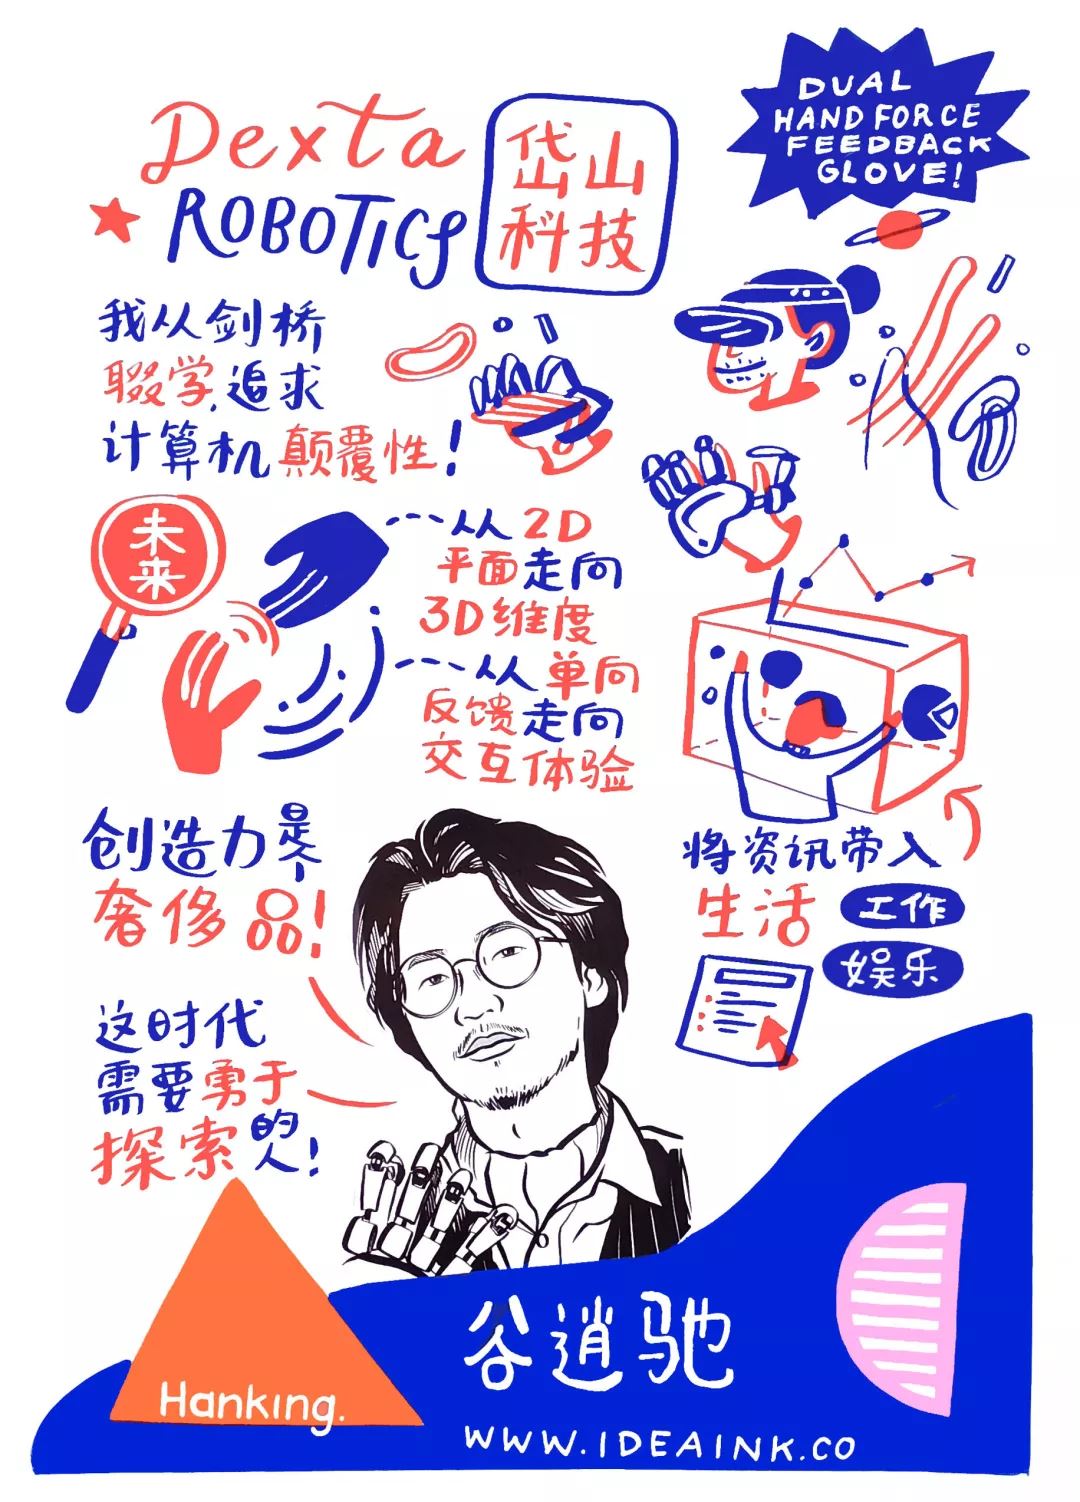 Dexta
ROBOTICS
岱山
科技
DUAL
HAND FORCE
FEEDBACK
GLOVE!
我从剑桥
辍学,追求
计算机颠覆性!
未
来
从2D
平面走向
3D维度
从单向
反馈走向
交互体验
创造力是个
奢侈品!
将资讯带入
生活 工作
娱乐
这时代
需要勇于
探索的人!
Hanking.
谷逍驰
WWW.IDEAINK.CO